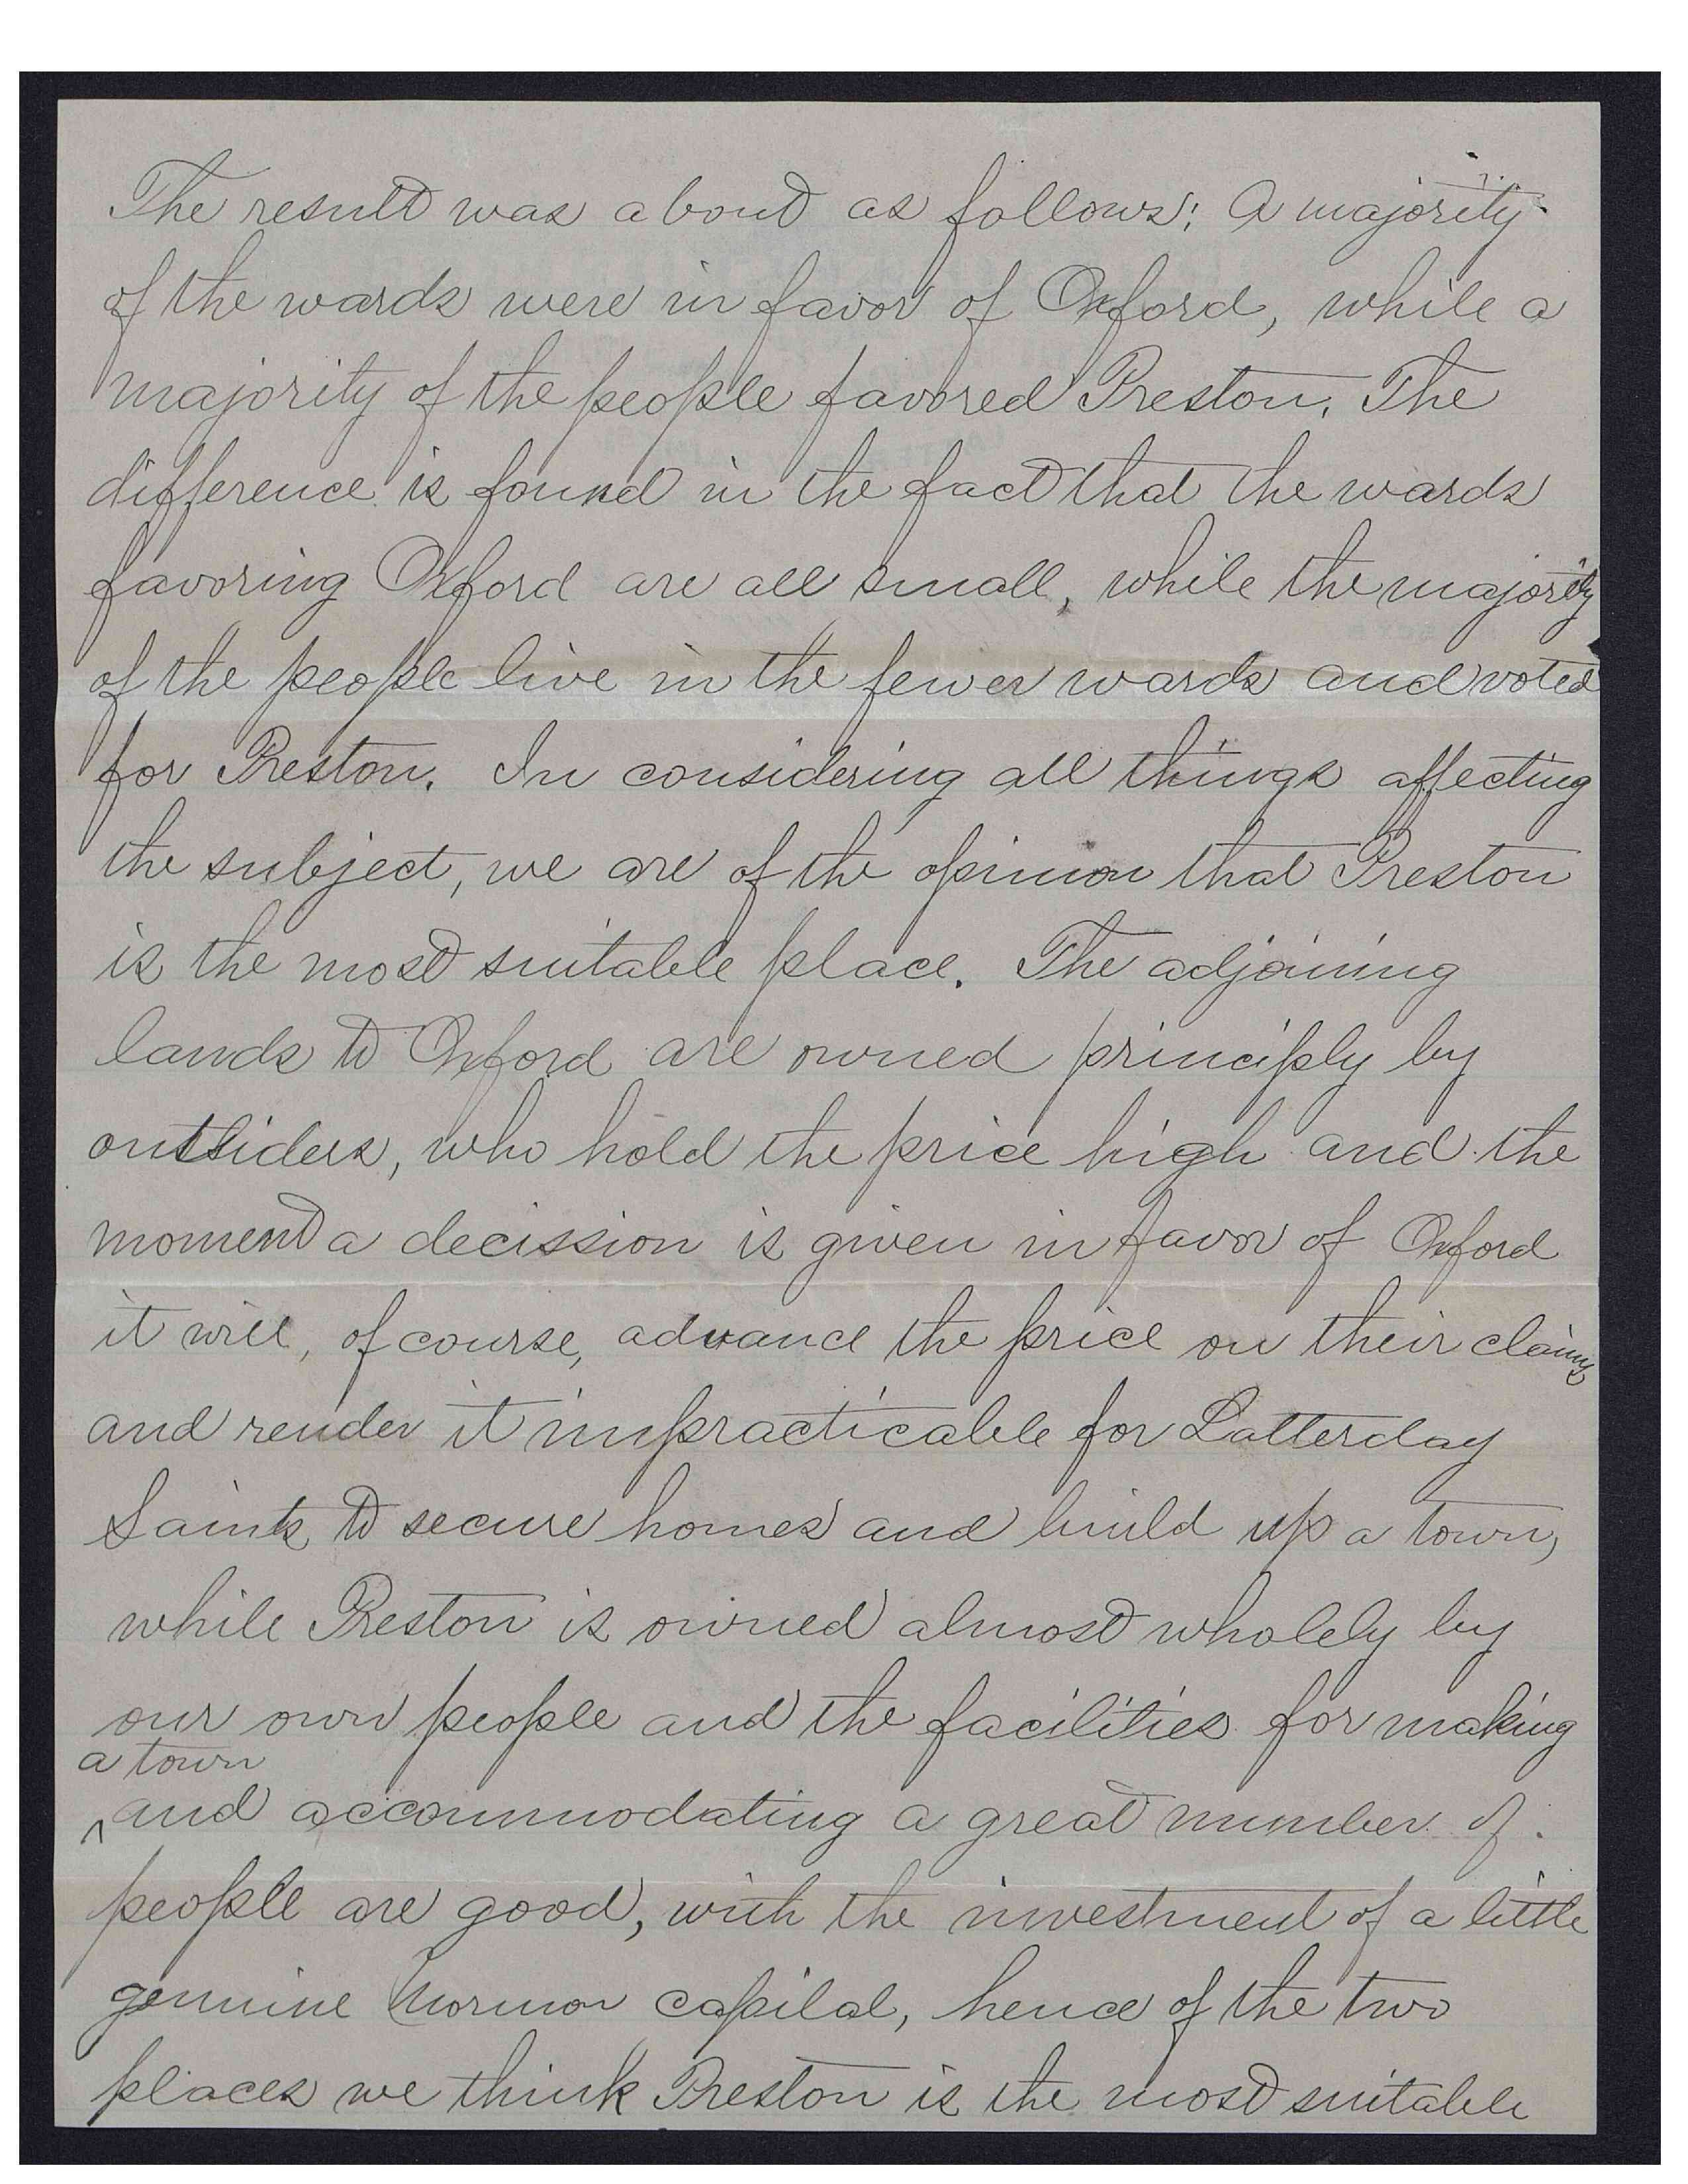 The result was about as follows: A majority
of the wards were in favor of Oxford, while a
majority of the people favored Preston. The
difference is found in the fact that the wards
favoring Oxford are all small, while the majority
of the people live in the fewer wards and voted
for Preston. In considering all things affecting
the subject, we are of the opinion that Preston
is the most suitable place. The adjoining
lands to Oxford are owned principly by
outsiders, who hold the price high and the
moment a decission is given in favor of Oxford
it will, of course, advance the price on their claims
and render it impracticable for Latterday
Saints to secure homes and build up a town,
while Preston is owned almost wholely by
our own people and the facilities for making
a town
^and accommodating a great number of
people are good, with the investment of a little
genuine Mormon capital, hence of the two
places we think Preston is the most suitable